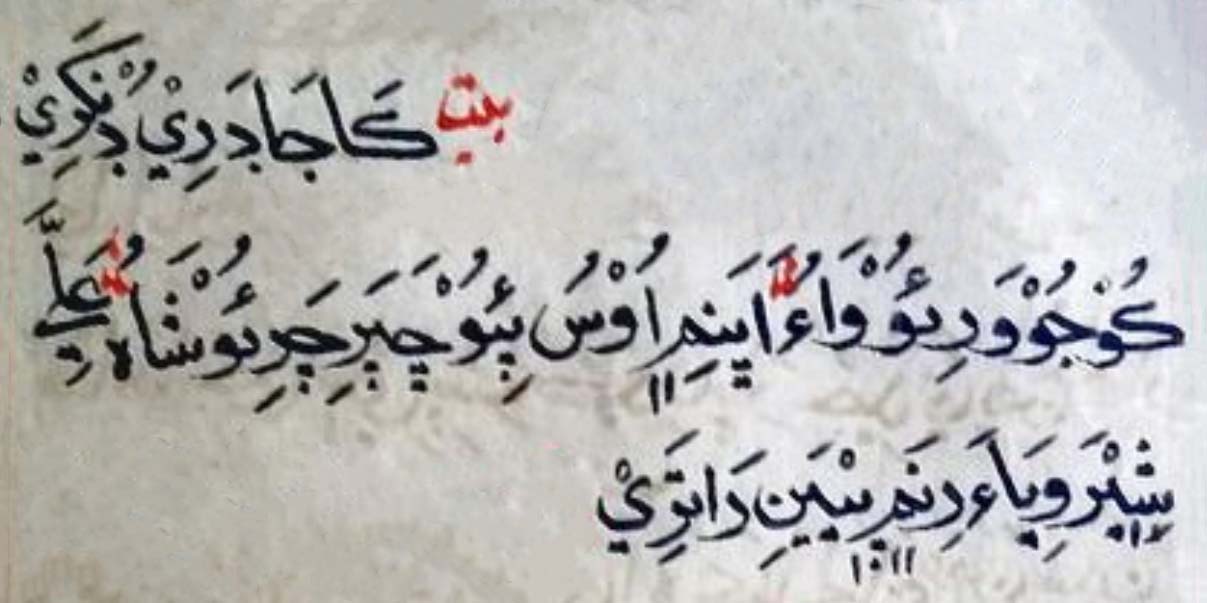 بيت كَاجَا دَرِيْ دُنْكَوِيْ
كُوْجُوْ وَرِئُوْ وَاءُ اَيَنِمِ اُوْسُ پِئُوْ چَپَرِ چَرِئُوْ شَاهُ عَلِيَّ
شِيْرَ وِيَاءَ دِنَمِ سِيَنِ دَاتَرِيْ